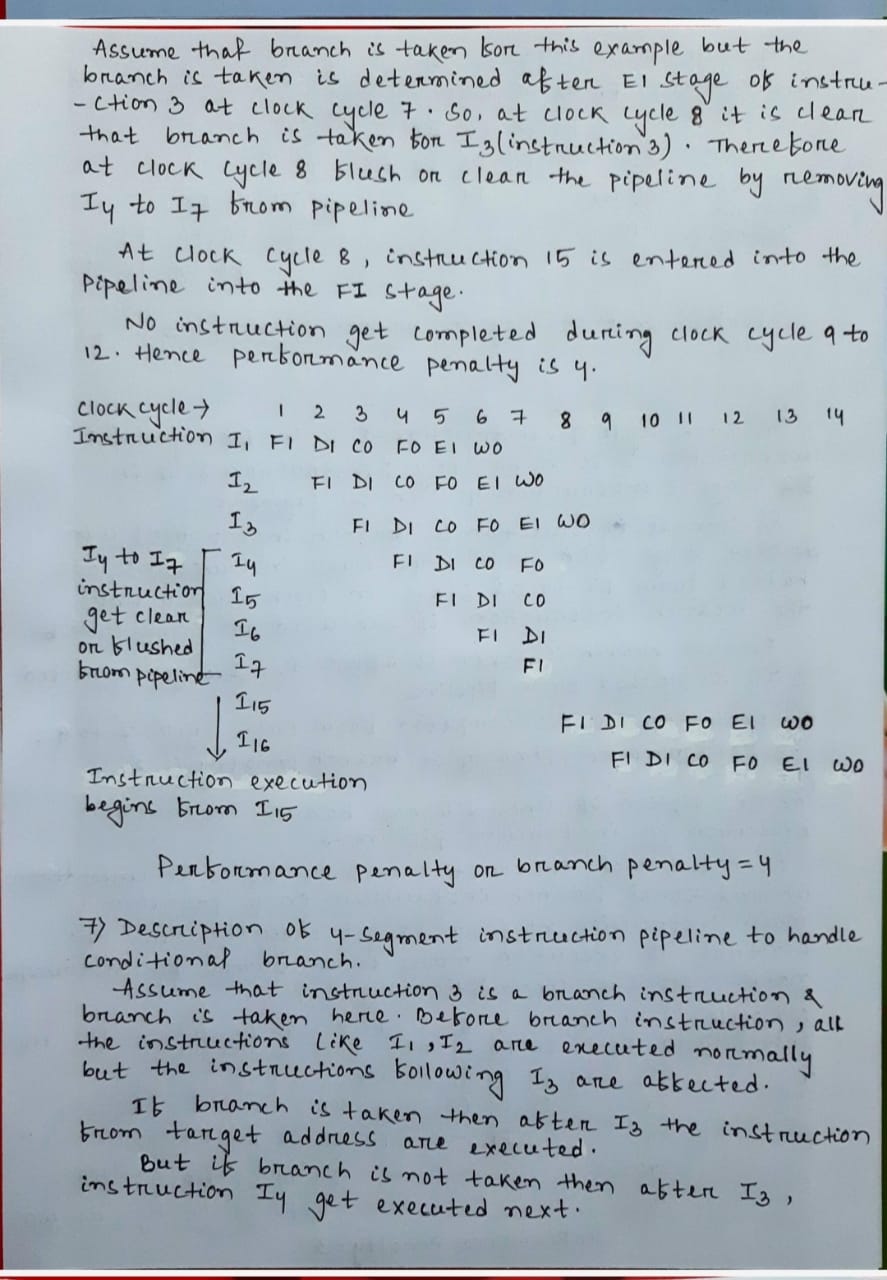 Assume that branch is taken for this example but the
branch is taken is determined after EI stage of instru-
-ction 3 at clock cycle 7. So, at clock cycle 8 it is clear
that branch is taken for I3(instruction 3). Therefore
at clock cycle 8 flush or clear the pipeline by removing
I4 to I7 from pipeline
At clock cycle 8, instruction 15 is entered into the
Pipeline into the FI stage.
No instruction get completed during clock cycle 9 to
12. Hence performance penalty is 4.
clock cycle → 1 2 3 4 5 6 7 8 9 10 11 12 13 14
Instruction I1 FI DI CO FO EI WO
I2 FI DI CO FO EI WO
I3 FI DI CO FO EI WO
I4 to I7 I4 FI DI CO FO
instruction I5 FI DI CO
get clear I6 FI DI
or flushed
from pipeline I7 FI
I15 FI DI CO FO EI WO
I16 FI DI CO FO EI WO
Instruction execution
begins from I15
Performance penalty or branch penalty = 4
7) Description of 4-segment instruction pipeline to handle
conditional branch.
Assume that instruction 3 is a branch instruction &
branch is taken here. Before branch instruction, all
the instructions like I1, I2 are executed normally
but the instructions following I3 are affected.
If branch is taken then after I3 the instruction
from target address are executed.
But if branch is not taken then after I3,
instruction I4 get executed next.